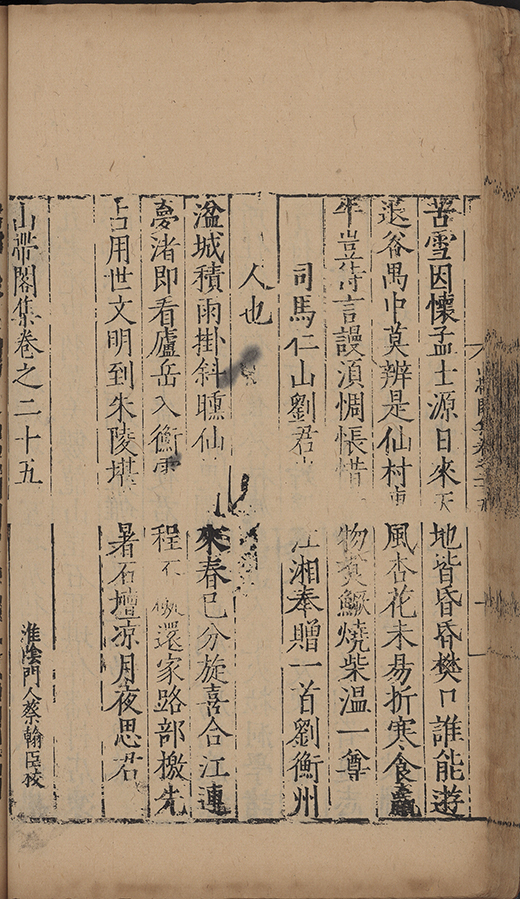 苦雪因懷孟士源日來天地皆昏昏樊口誰能遊
退谷禺中莫辨是仙村東風杏花未易折寒食羸
牛豈待言謾湏惆悵惜物煑鱖燒柴温一尊
司馬仁山劉君江湘奉贈一首劉衡州
人也
湓城積雨掛斜曛仙來春已分旋喜合江連
夢渚即看廬岳入衡雲程不還家路部檄先
占用世文明到朱陵堪暑石壇凉月夜思君
山帶閣集卷之二十五
淮陰門人蔡翰臣校